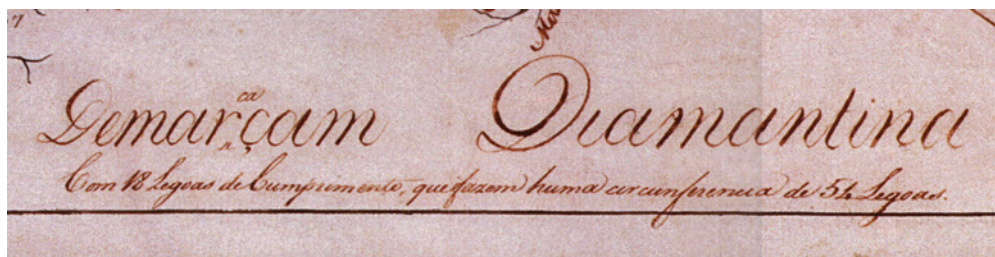 ca
Demarçam Diamantina
Com 18 Legoas de Cumprimento, que fazem huma circunferencia de 54 Legoas.